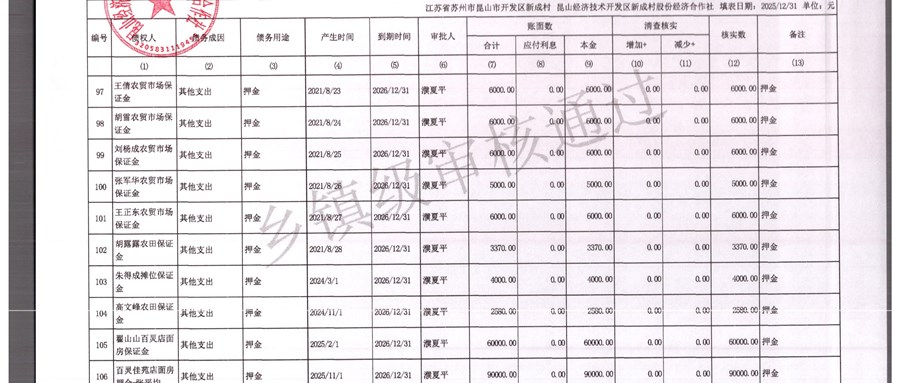 江苏省苏州市昆山市开发区新成村 昆山经济技术开发区新成村股份经济合作社 填表日期: 2025/12/31 单位: 元
编号 债权人 债务成因 债务用途 产生时间 到期时间 审批人 账面数 清查核实 核实数 备注
合计 应付利息 本金 增加+ 减少-
(1) (2) (3) (4) (5) (6) (7) (8) (9) (10) (11) (12) (13)
97 王倩农贸市场保证金 其他支出 押金 2021/8/23 2026/12/31 濮夏平 6000.00 0.00 6000.00 0.00 0.00 6000.00 押金
98 胡雷农贸市场保证金 其他支出 押金 2021/8/24 2026/12/31 濮夏平 6000.00 0.00 6000.00 0.00 0.00 6000.00 押金
99 刘杨成农贸市场保证金 其他支出 押金 2021/8/25 2026/12/31 濮夏平 6000.00 0.00 6000.00 0.00 0.00 6000.00 押金
100 张军华农贸市场保证金 其他支出 押金 2021/8/26 2026/12/31 濮夏平 5000.00 0.00 5000.00 0.00 0.00 5000.00 押金
101 王正东农贸市场保证金 其他支出 押金 2021/8/27 2026/12/31 濮夏平 6000.00 0.00 6000.00 0.00 0.00 6000.00 押金
102 胡露露农田保证金 其他支出 押金 2021/8/28 2026/12/31 濮夏平 3370.00 0.00 3370.00 0.00 0.00 3370.00 押金
103 朱得成摊位保证金 其他支出 押金 2024/3/1 2026/12/31 濮夏平 4000.00 0.00 4000.00 0.00 0.00 4000.00 押金
104 高文峰农田保证金 其他支出 押金 2024/11/1 2026/12/31 濮夏平 2580.00 0.00 2580.00 0.00 0.00 2580.00 押金
105 翟山山百灵店面房保证金 其他支出 押金 2025/2/1 2026/12/31 濮夏平 60000.00 0.00 60000.00 0.00 0.00 60000.00 押金
106 百灵佳苑店面房 其他支出 押金 2025/11/1 2026/12/31 濮夏平 90000.00 0.00 90000.00 0.00 0.00 90000.00 押金
乡镇级审核通过